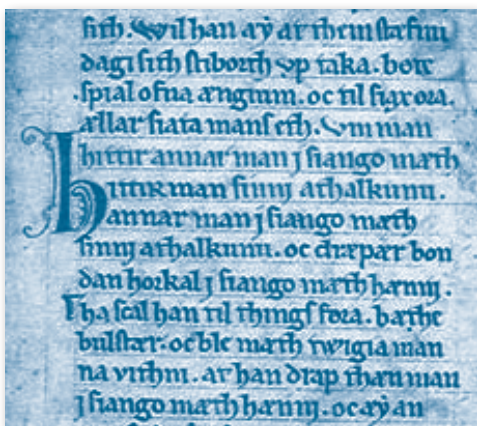 ſith. Wil han aẏ at them ſtæfnu
dagi ſith ſtiborth vp taka. bøte
.ſpial ofna ænginm. oc til ſiax ora.
ællar ſiata manſ eth. Vm man
hittir annar man j ſiango mæth
Hittir man ſinnj athalkunu.
annar man j ſiango mæth
ſinnj athalkunu. oc dræpær bon
dan horkal j ſiango mæth hænnj.
Tha ſcal han til thingſ føra. bæthe
bulſtær. oc ble mæth twigia man
na vithni. at han drap than man
j ſiango mæth hænnj. oc aẏ an